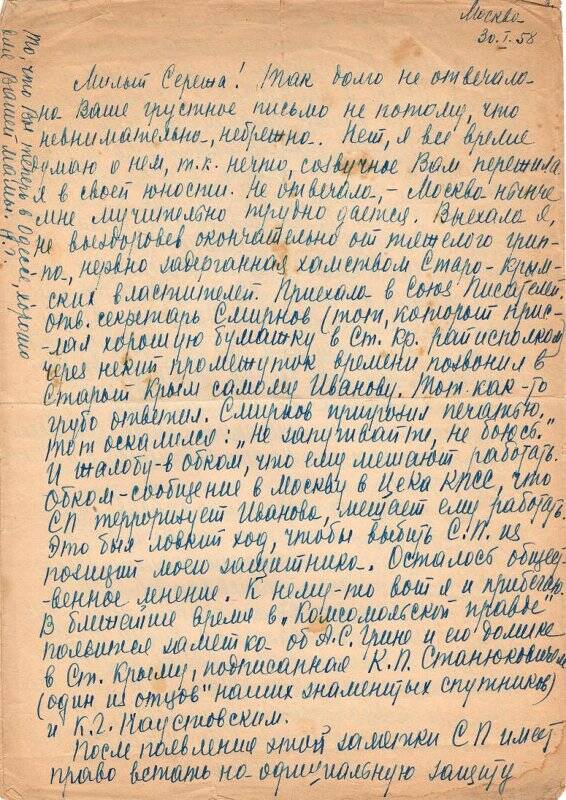 Москва
30.I.58
Милый Сережа! Так долго не отвечала
на Ваше грустное письмо не потому, что
невнимательна, небрежна. Нет, я все время
думаю о нем, т.к. нечто, созвучное Вам пережила
я в своей юности. Не отвечала, – Москва нынче
мне мучительно трудно дается. Выехала я,
не выздоровев окончательно от тяжелого грип-
па, нервно задерганная хамством Старо-Крым-
ских властителей. Приехала в Союз Писателей.
отв. секретарь Смирнов (тот, который прис-
лал хорошую бумажку в Ст. Кр. райисполком
через некий промежуток времени позвонил в
Старый Крым самому Иванову. Тот как-то
грубо ответил. Смирнов пригрозил печатью.
Тот оскалился: „Не запугивайте, не боюсь."
И жалобу-в обком, что ему мешают работать.
Обком-сообщение в Москву в Цека КПСС, что
СП терроризует Иванова, мешает ему работать.
Это был ловкий ход, чтобы выбить С.П. из
позиций моего защитника. Осталось общест-
венное мнение. К нему-то вот я и прибегаю.
В ближайшие время в „Комсомольской правде"
появится заметка об А.С. Грине и его домике
в Ст. Крыму, подписанная К.П. Станюковичем
(один из отцов" наших знаменитых спутников)
и К.Г. Паустовским.
После появления этой заметки СП имеет
право встать на официальную защиту
То, что Вы теперь в Одессе, хорошо
для Вашей мамы. Н.Г.